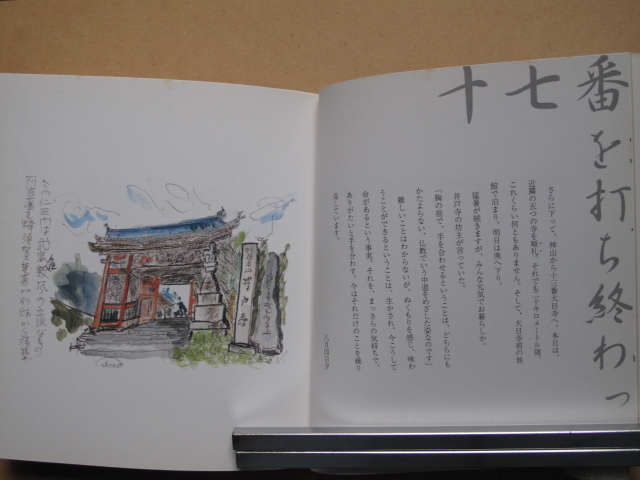 十七番を打ち終わっ
さらに下って、神山から十三番大日寺へ。本日は、
近隣の五つの寺を順礼。それでも二十キロメートル弱。
これくらい何ともありません。そして、大日寺前の旅
館で泊まり。明日は南へ下り。
猛暑が続きますが、みんな元気でお暮らしか。
井戸寺の坊主が言っていた。
「胸の前で、手を合わせるということは、どちらにも
かたよらない、仏教でいう中道をめざした姿なのです」
難しいことはわからないが、ぬくもりを感じ、味わ
うことができるということは、生かされ、今こうして
命があるという事実。それを、まっさらの気持ちで、
ありがたいと手を合わす。今はそれだけのことを繰り
返しています。
八月四日夕
この仁王門は
井戸寺